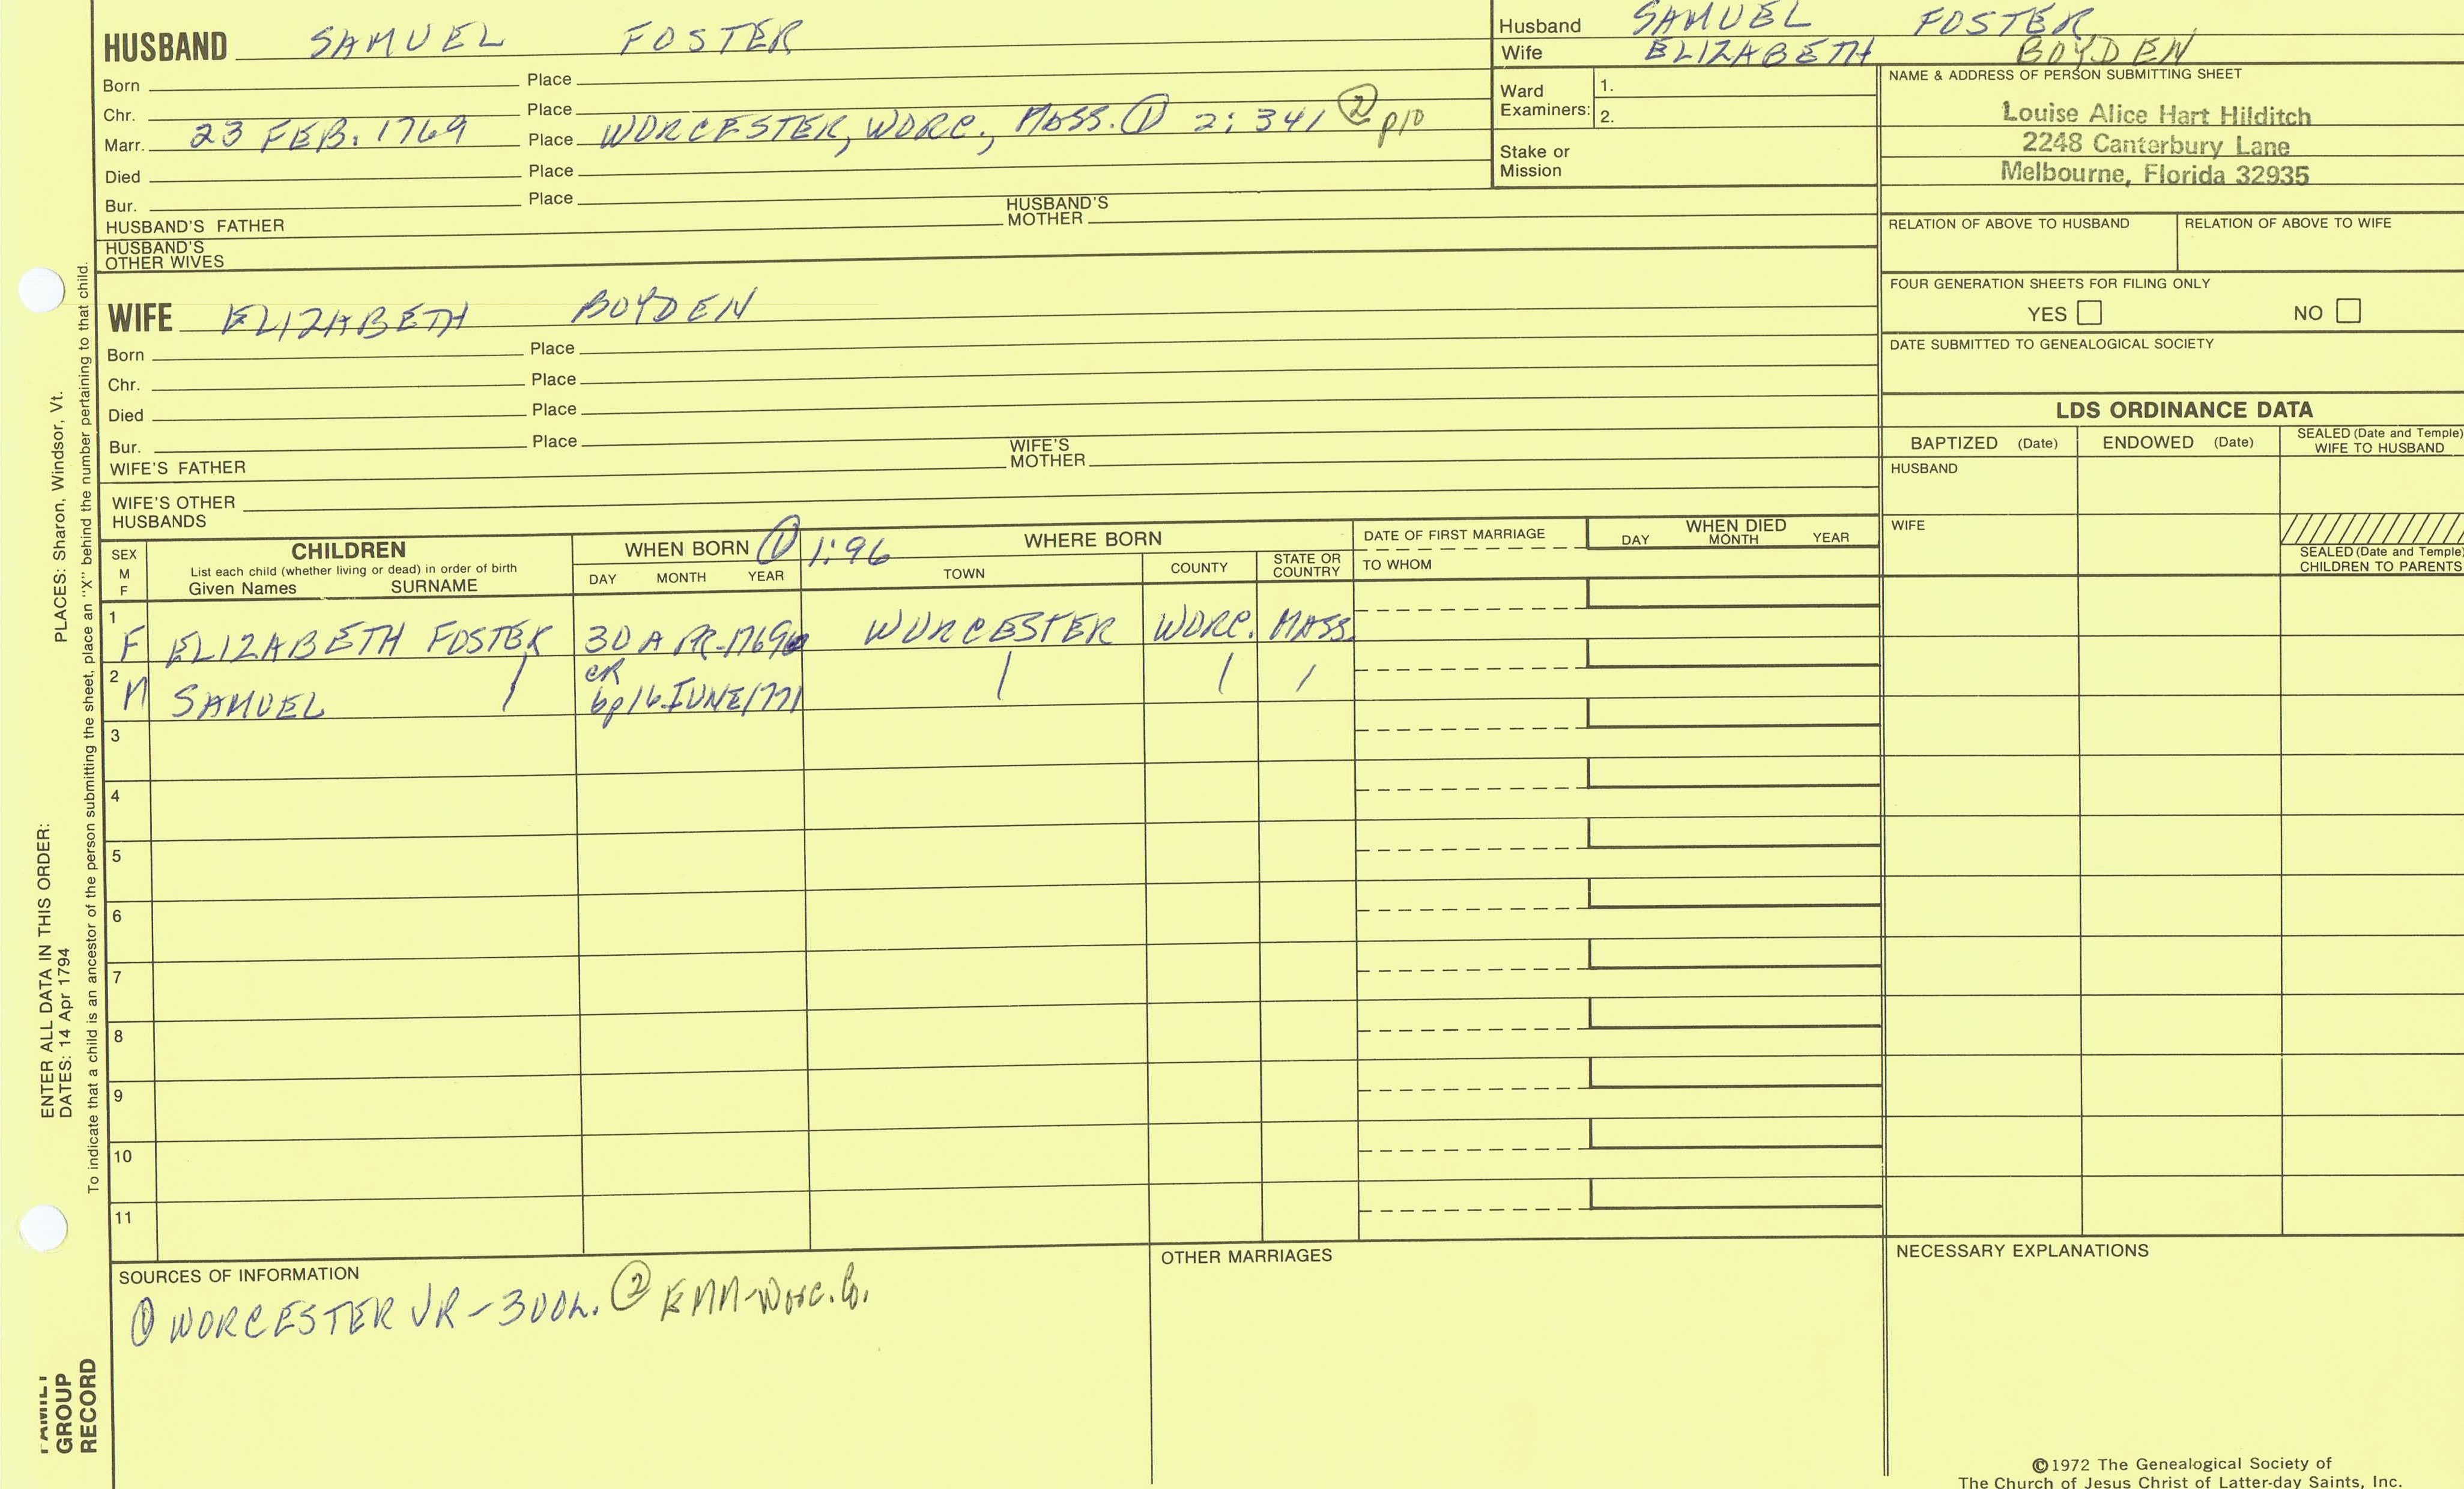 HUSBAND SAMUEL FOSTER
Born Place
Chr. Place
Marr. 23 FEB. 1769 Place WORCESTER, WORC., MASS. ① 2: 341 ② p10
Died Place
Bur. Place
HUSBAND'S FATHER HUSBAND'S MOTHER
HUSBAND'S OTHER WIVES
Husband SAMUEL FOSTER
Wife ELIZABETH BOYDEN
Ward Examiners: 1.
2.
Stake or Mission
NAME & ADDRESS OF PERSON SUBMITTING SHEET
Louise Alice Hart Hilditch
2248 Canterbury Lane
Melbourne, Florida 32935
RELATION OF ABOVE TO HUSBAND RELATION OF ABOVE TO WIFE
FOUR GENERATION SHEETS FOR FILING ONLY
YES NO
DATE SUBMITTED TO GENEALOGICAL SOCIETY
WIFE ELIZABETH BOYDEN
Born Place
Chr. Place
Died Place
Bur. Place
WIFE'S FATHER WIFE'S MOTHER
WIFE'S OTHER HUSBANDS
LDS ORDINANCE DATA
BAPTIZED (Date) ENDOWED (Date) SEALED (Date and Temple) WIFE TO HUSBAND
HUSBAND
WIFE
SEALED (Date and Temple) CHILDREN TO PARENTS
SEX M F
CHILDREN
List each child (whether living or dead) in order of birth
Given Names SURNAME
WHEN BORN ① 1:96
DAY MONTH YEAR
WHERE BORN
TOWN COUNTY STATE OR COUNTRY
DATE OF FIRST MARRIAGE
TO WHOM
WHEN DIED
DAY MONTH YEAR
1 F ELIZABETH FOSTER 30 APR. 1769 WORCESTER WORC. MASS.
2 M SAMUEL / CR bp 16 JUNE 1771 / / /
3
4
5
6
7
8
9
10
11
SOURCES OF INFORMATION
① WORCESTER VR - 300h. ② EMM-Worc. Co.
OTHER MARRIAGES
NECESSARY EXPLANATIONS
©1972 The Genealogical Society of
The Church of Jesus Christ of Latter-day Saints, Inc.
PLACES: Sharon, Windsor, Vt.
ENTER ALL DATA IN THIS ORDER:
DATES: 14 Apr 1794
To indicate that a child is an ancestor of the person submitting the sheet, place an "X" behind the number pertaining to that child.
FAMILY
GROUP
RECORD